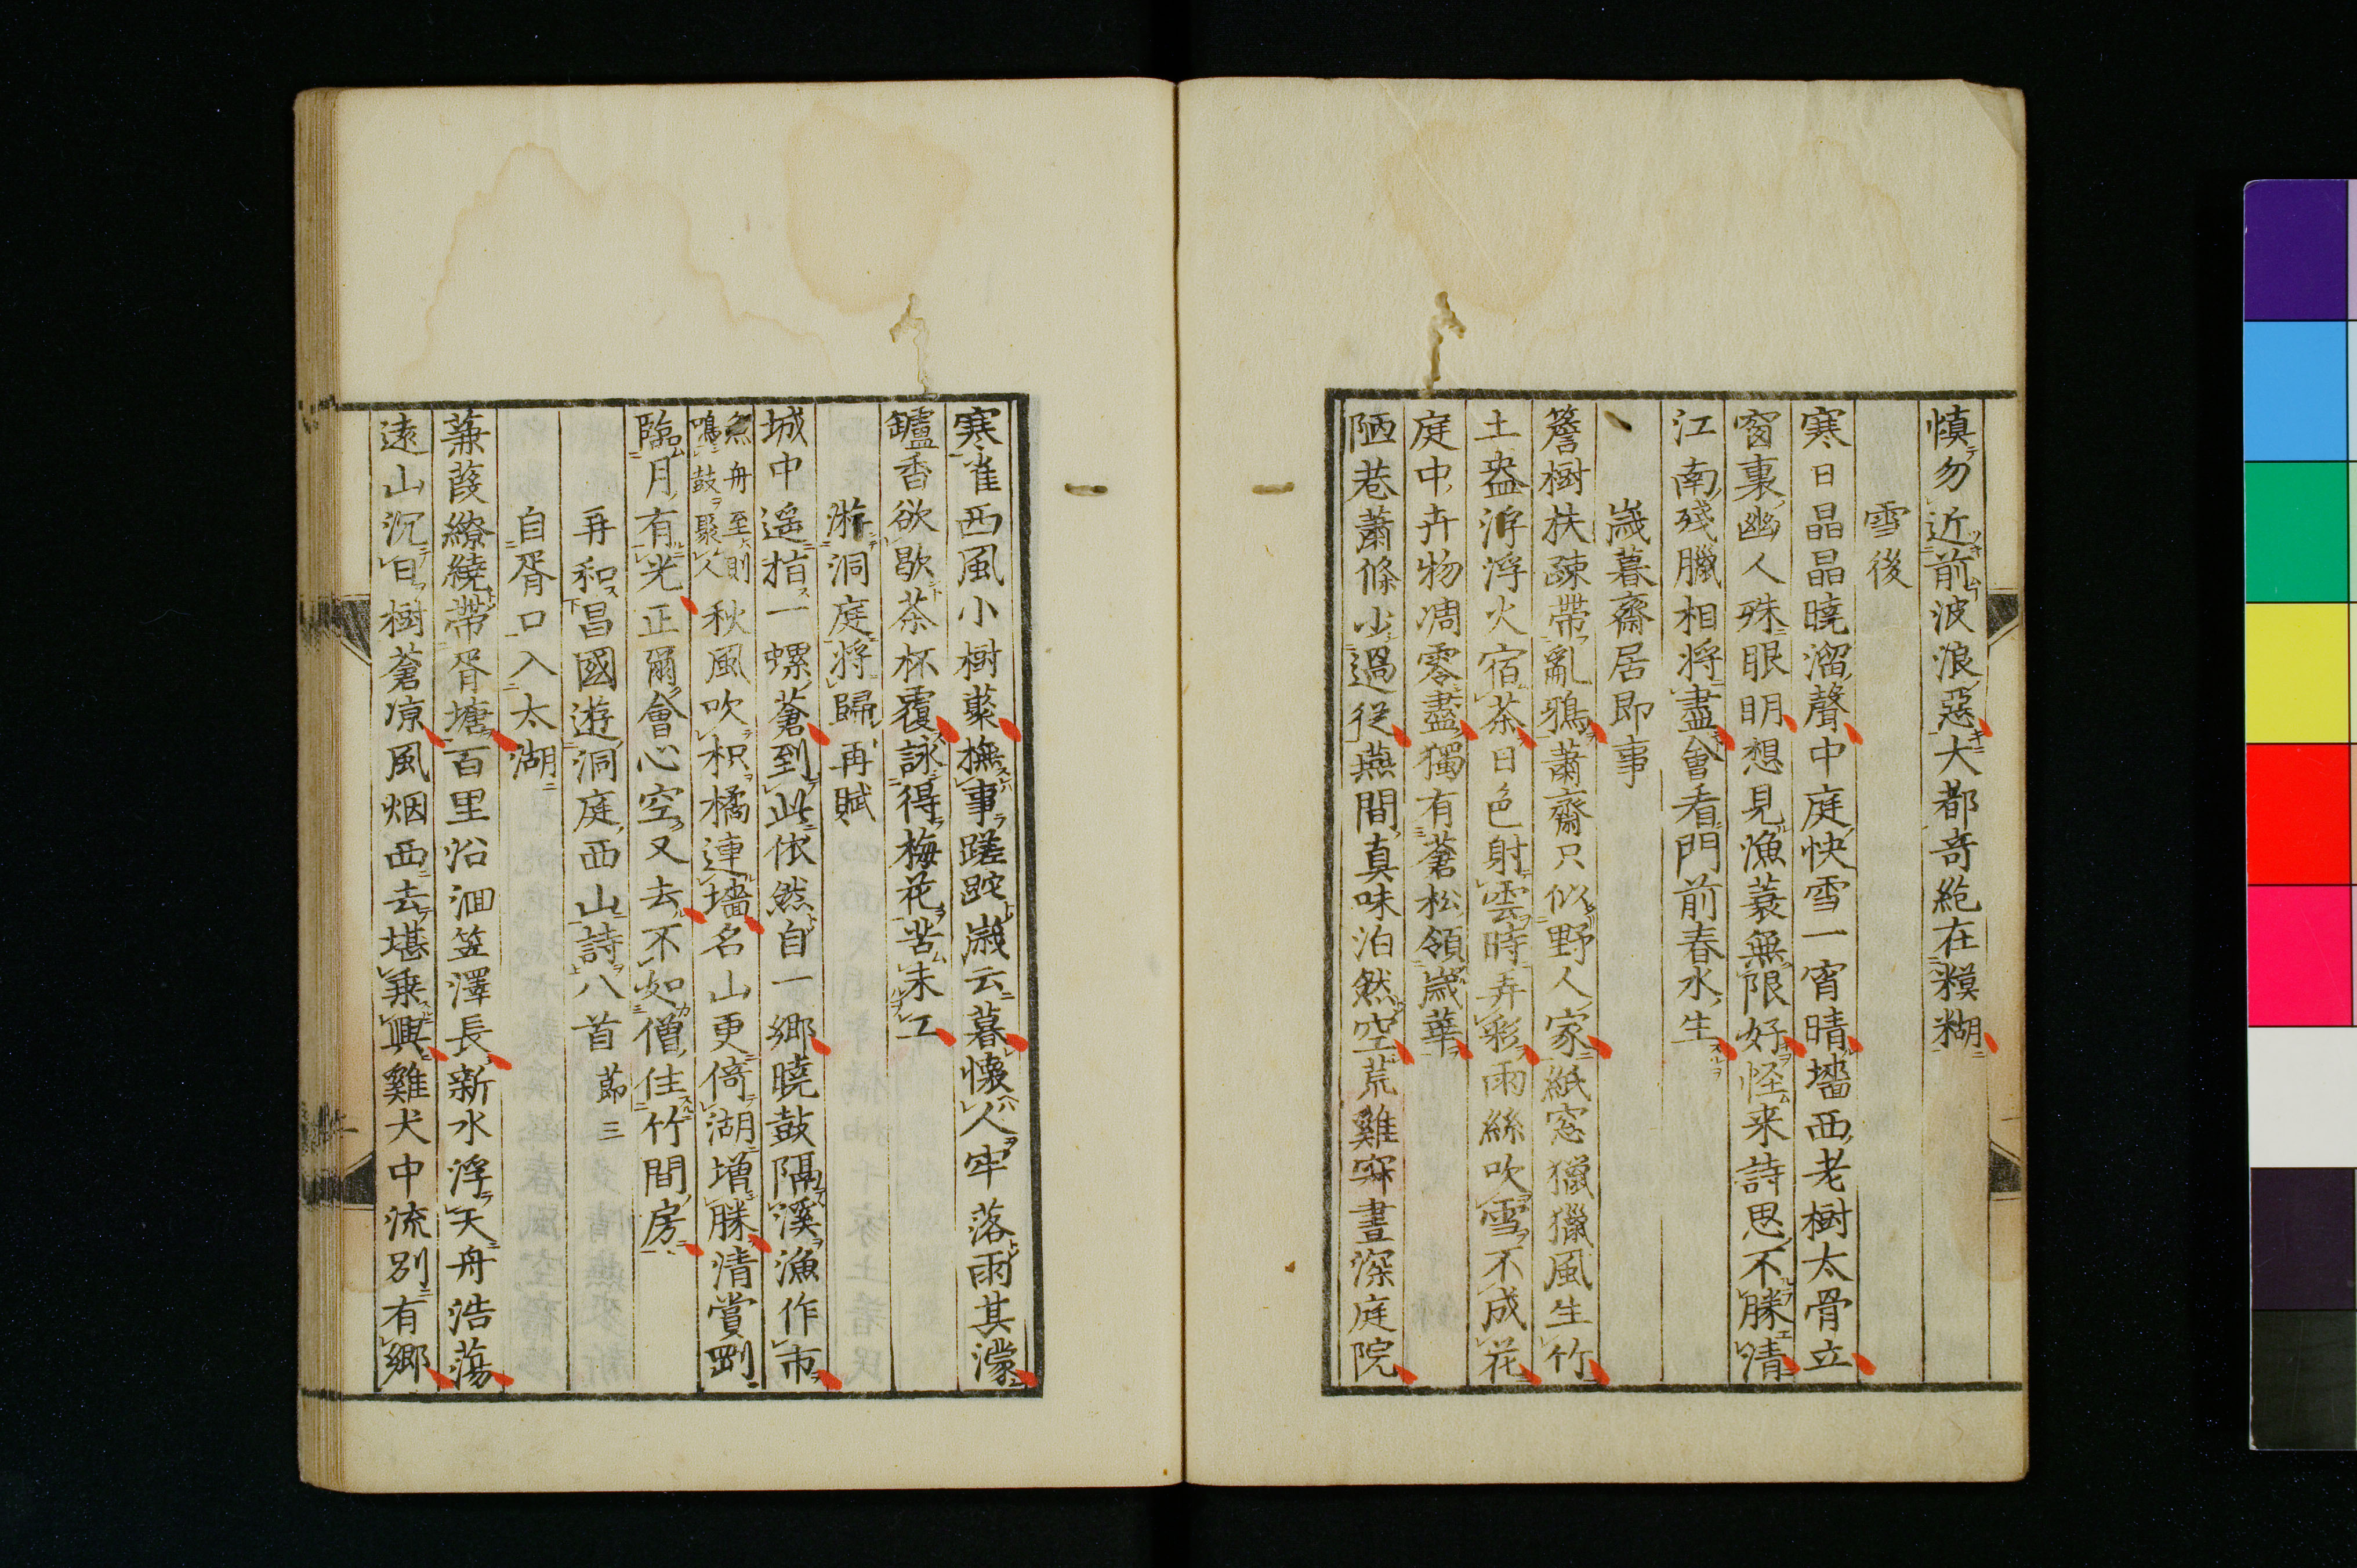 慎勿近前波浪惡大都奇絶在糢糊
雪後
寒日晶晶曉溜聲中庭快雪一宵晴墻西老樹太骨立
窗裏幽人殊眼明想見漁蓑無限好怪来詩思不勝清
江南殘臘相将盡會看門前春水生
歳暮齋居即事
簷樹扶疎帶亂鴉蕭齋只似野人家紙窓獵獵風生竹
土盎浮浮火宿茶日色射雲時弄彩雨絲吹雪不成花
庭中卉物凋零盡獨有蒼松領歳華
陋巷蕭條少過従燕間真味泊然空荒雞穽晝深庭院
寒雀西風小樹藂撫事蹉跎歳云暮懐人牢落雨其濛
鑪香欲歇茶杯覆詠得梅花苦未工
游洞庭将歸再賦
城中遥指一螺蒼到此依然自一郷曉鼓隔溪漁作市
魚舟至則鳴鼓聚人秋風吹枳橘連墻名山更倚湖増勝清賞剛
臨月有光正爾會心空又去不如僧住竹間房
再和昌國遊洞庭西山詩八首 莭三
自胥口入太湖
蒹葭繚繞帶胥塘百里沿洄笠澤長新水浮天舟浩蕩
遠山沉日樹蒼凉風烟西去堪乗興雞犬中流别有郷